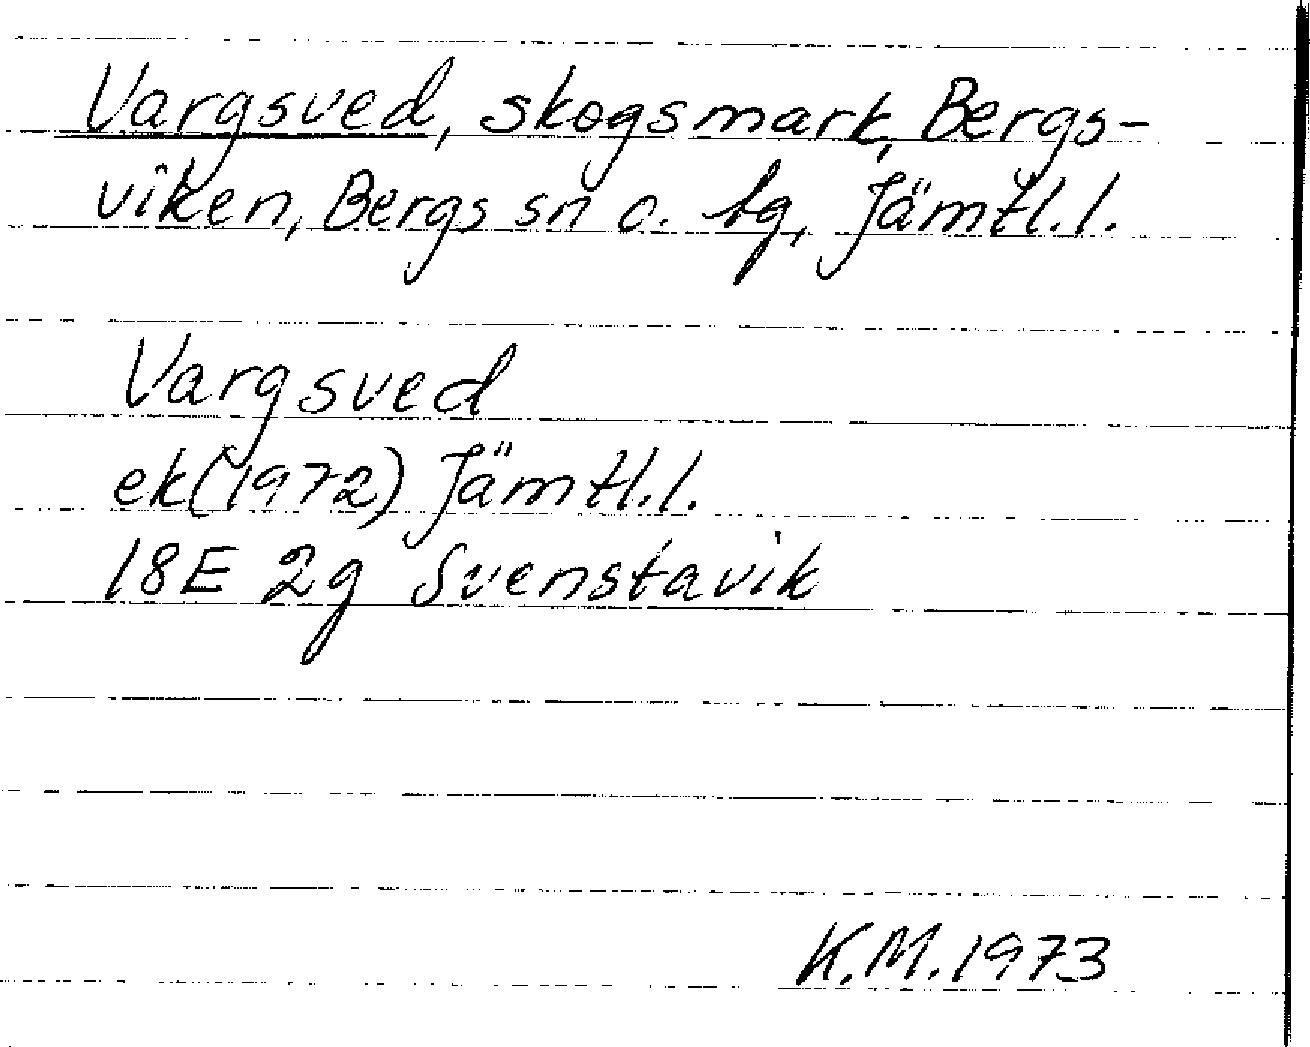 Vargsved, skogsmark, Bergs-
viken, Bergs sn o. tg, Jämtl.l.
Vargsved
ek(1972) Jämtl.l.
18E 2g Svenstavik
K.M.1973